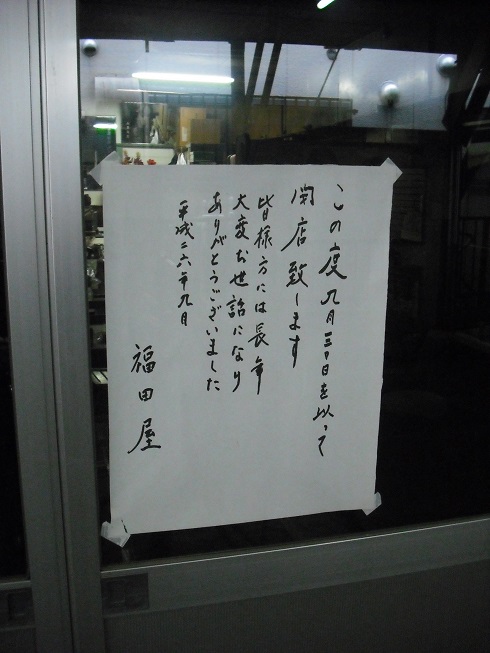 この度九月三十日を以って
閉店致します
皆様方には長年
大変お世話になり
ありがとうございました
平成二六年九月
福田屋